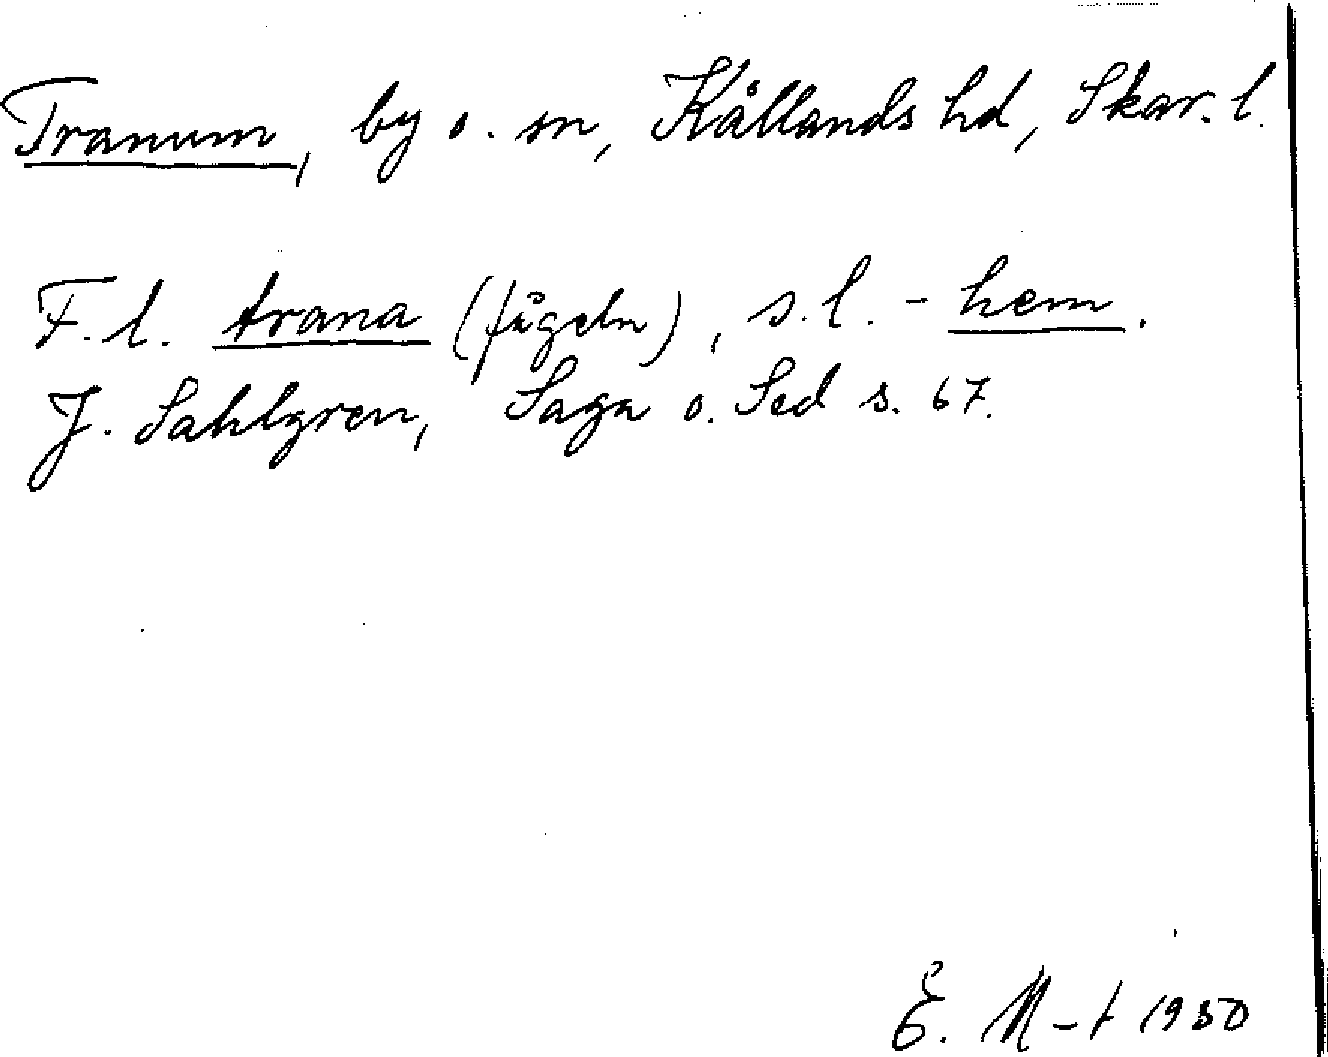 Tranum, by o. sn, Kållands hd, Skar. l.
F. l. trana (fågeln), s. l. - hem.
J. Sahlgren, Saga o. Sed s. 67.
E. M-t 1930